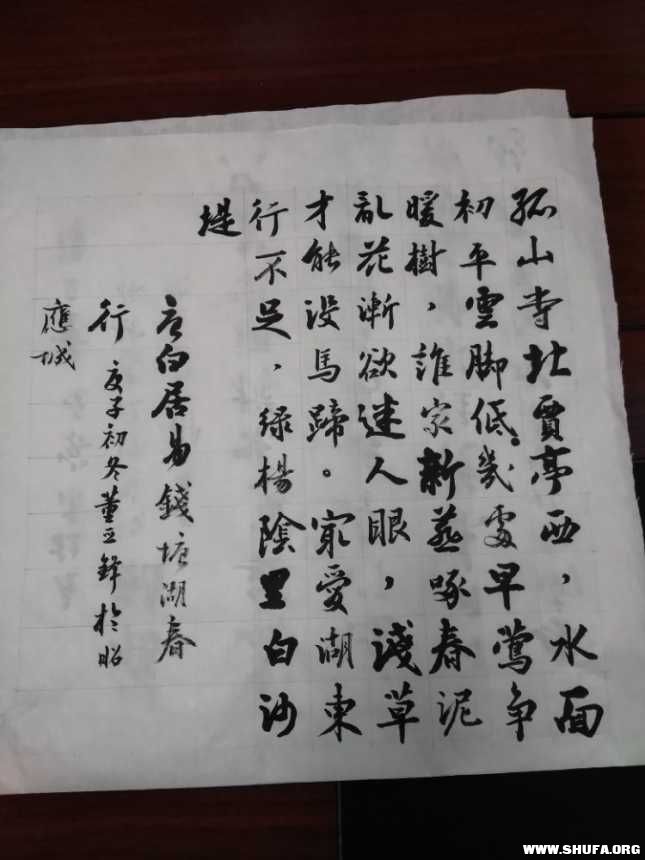 孤山寺北賈亭西，水面
初平雲脚低。幾處早鶯争
暖樹，誰家新燕啄春泥
乱花漸欲迷人眼，淺草
才能没馬蹄。最愛湖東
行不足，绿楊陰里白沙
堤
唐白居易錢塘湖春
行 庚子初冬董鋒於昭
應城
WWW.SHUFA.ORG